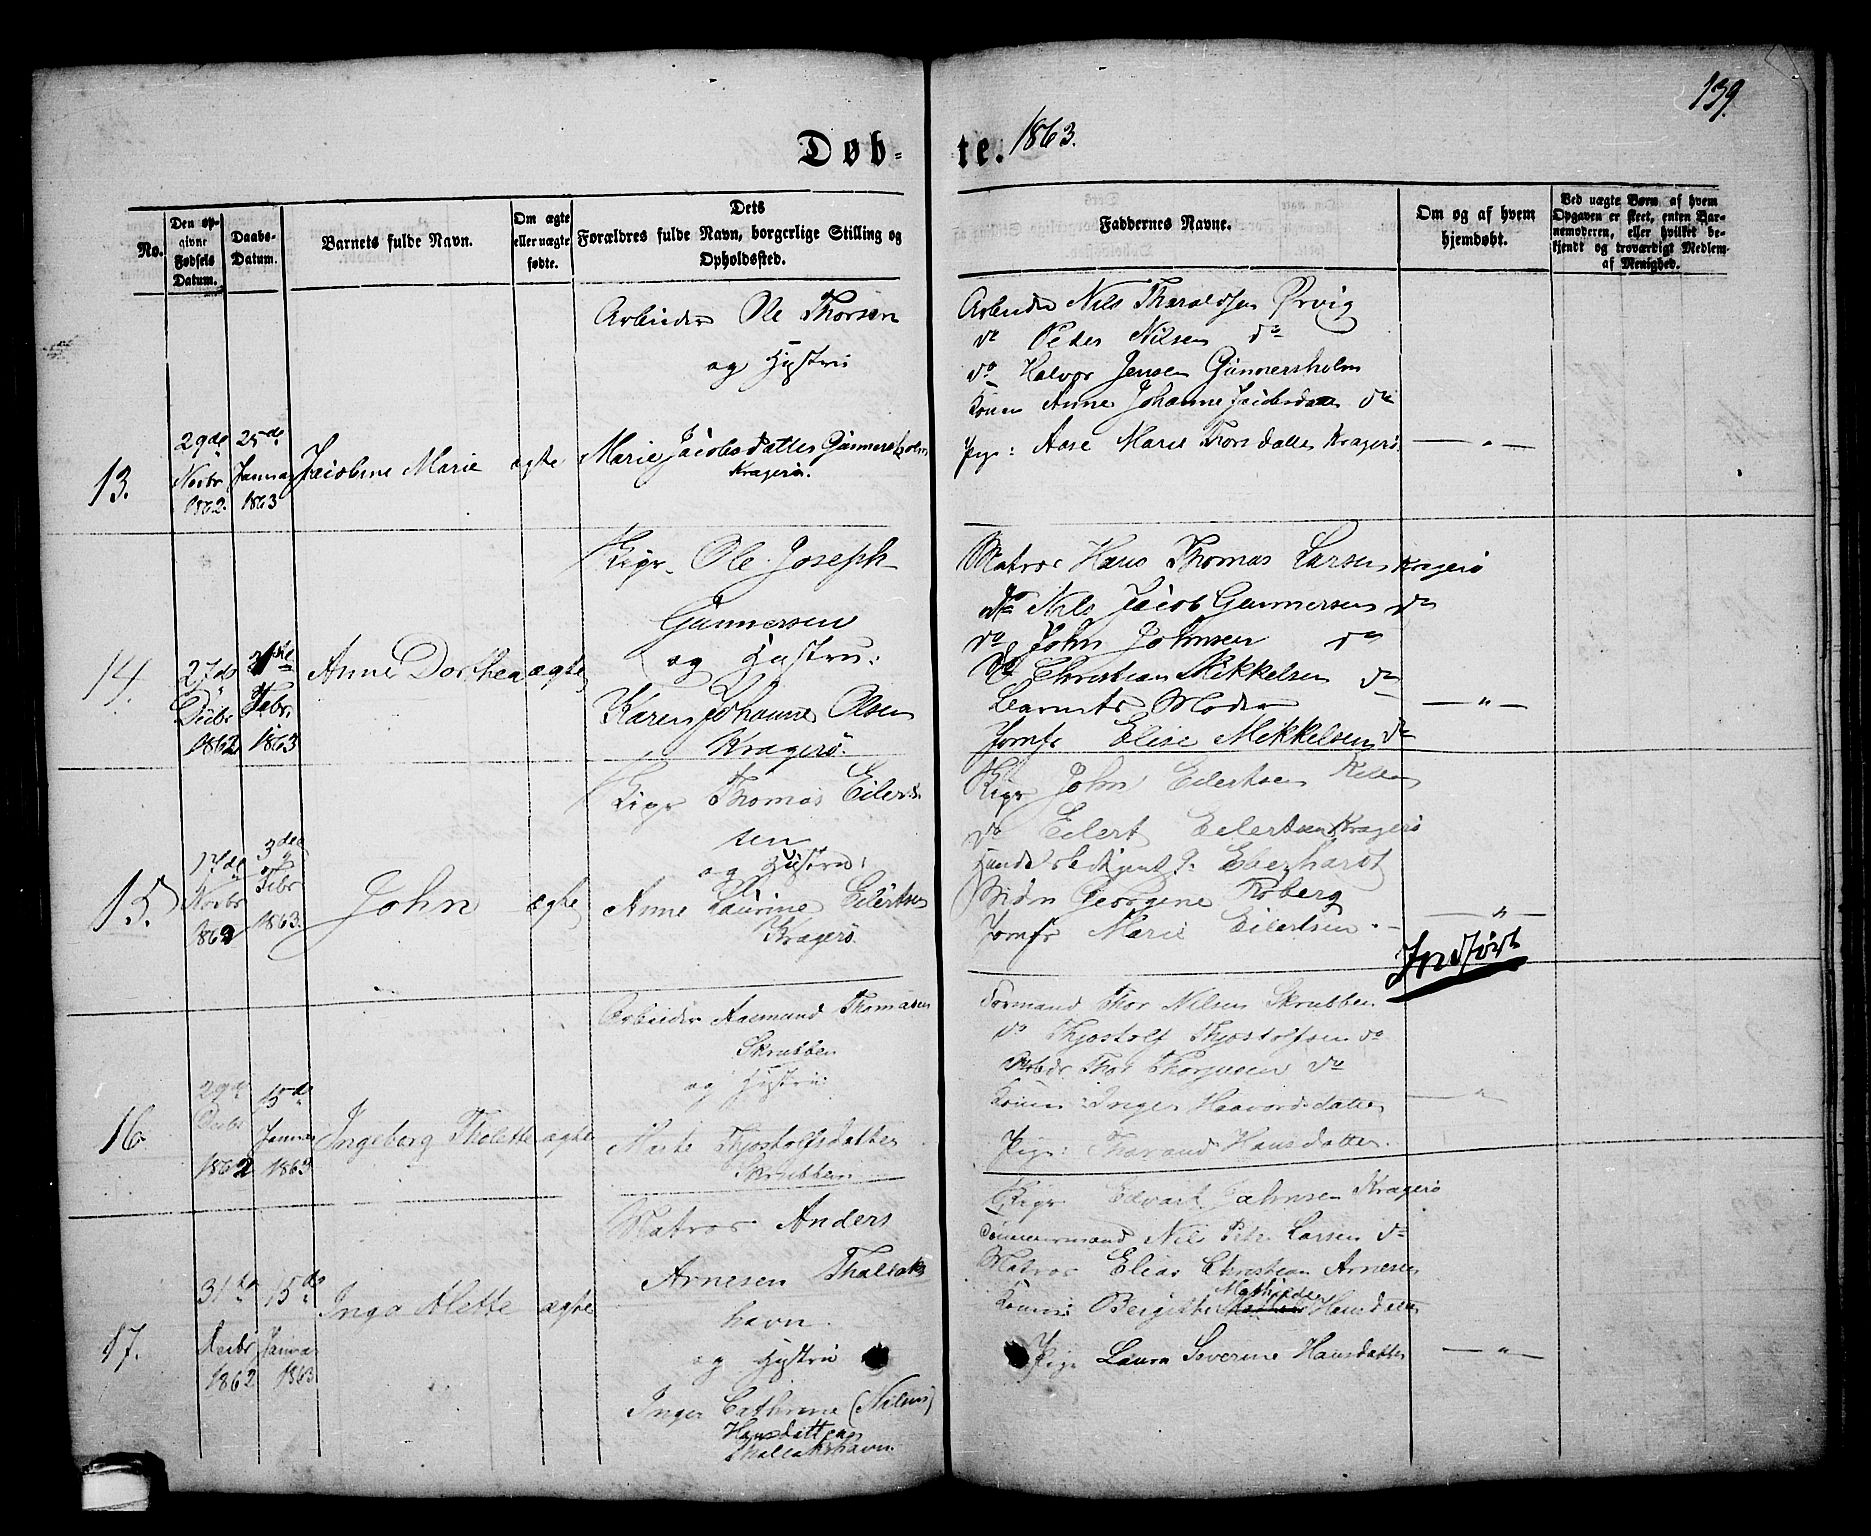 139.
Døb-
te. 1863.
No.
Den op-
givne
Fødsels
Datum.
Daabs-
Datum.
Barnets fulde Navn.
Om ægte
eller uægte
fødte.
Dets
Forældres fulde Navn, borgerlige Stilling og
Opholdssted.
Faddernes Navne.
Om og af hvem
hjemdøbt.
Ved uægte Børn af hvem
Opgaven er skeet, enten Bar-
nemoderen, eller hvilket be-
kjendt og troværdigt Medlem
af Menighed.
13.
29de
Novbr
1862.
25de
Januar
1863
Jacobine Marie
ægte
Arbeider Ole Thorsen
og Hustru
Marie Jacobsdatter Gunnersholm
Kragerø.
Arbeider Nils Tharaldsen Ørvig
do Peder Nilsen do
do Halvor Jensen Gunnersholm
Konen Anne Johanne Jacobsdatter do
Pige: Aase Marie Thorsdatter Kragerø.
— " —
14.
27de
Decbr
1862
Febr.
1863
Anne Dorthea
ægte
Ole Joseph
Gunnersen
og Hustru:
Karen Johanne Olsen
Kragerø.
Matros Hans Thomas Larsen Kragerø
do Nils Jacob Gunnersen do
do John Johnsen do
do Christian Mikkelsen do
Barnets Moder
Jomfr Elise Mikkelsen do
— " —
15.
17de
Novbr
1862
3die
Febr
1863.
John
ægte
Thomas Eilert-
sen
og Hustru:
Anne Laurine Eilertsen
Kragerø.
John Eilertsen
do Eilert Eilertsen Kragerø
Eberhardt
Georgene Roberg
Jomfr Marie Eilertsen.
— " —
Indført
16.
29de
Decbr
1862
15de
Januar
1863
Ingeborg Tholette
ægte
Arbeider Aasmund Thomasen
Skrubben
og Hustru:
Marte Thjostolfsdatter
Skrubben
Formand Thor Nilsen Skrubben
do Thjostolf Thjostolfsen do
Arbdr Thor Thorjusen do
Konen: Inger Haavordsdatter
Pige: Thorand Hansdatter.
— " —
17.
31te
Decbr
1862
15de
Januar
1863
Inga Alette
ægte
Matros Anders
Arnesen Thallaks
havn.
og Hustru
Inger Cathrine (Nilsen)
Hansdatter
Thallakshavn.
Edvart Jahnsen Kragerø
Tømmermand Nils Peter Larsen do
Matros Elias Christian Arnesen
Mathilde
Konen: Bergithe Hansdatter
Pige Laura Severine Hansdatter
— " —